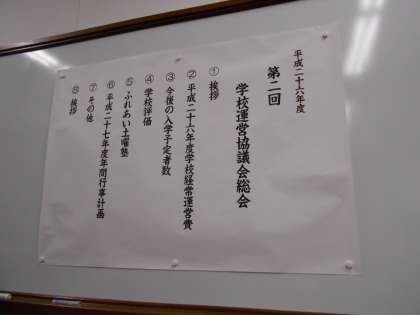 平成二十六年度
第二回
学校運営協議会総会
① 挨拶
② 平成二十六年度学校経常運営費
③ 今後の入学予定者数
④ 学校評価
⑤ ふれあい土曜塾
⑥ 平成二十七年度年間行事計画
⑦ その他
⑧ 挨拶